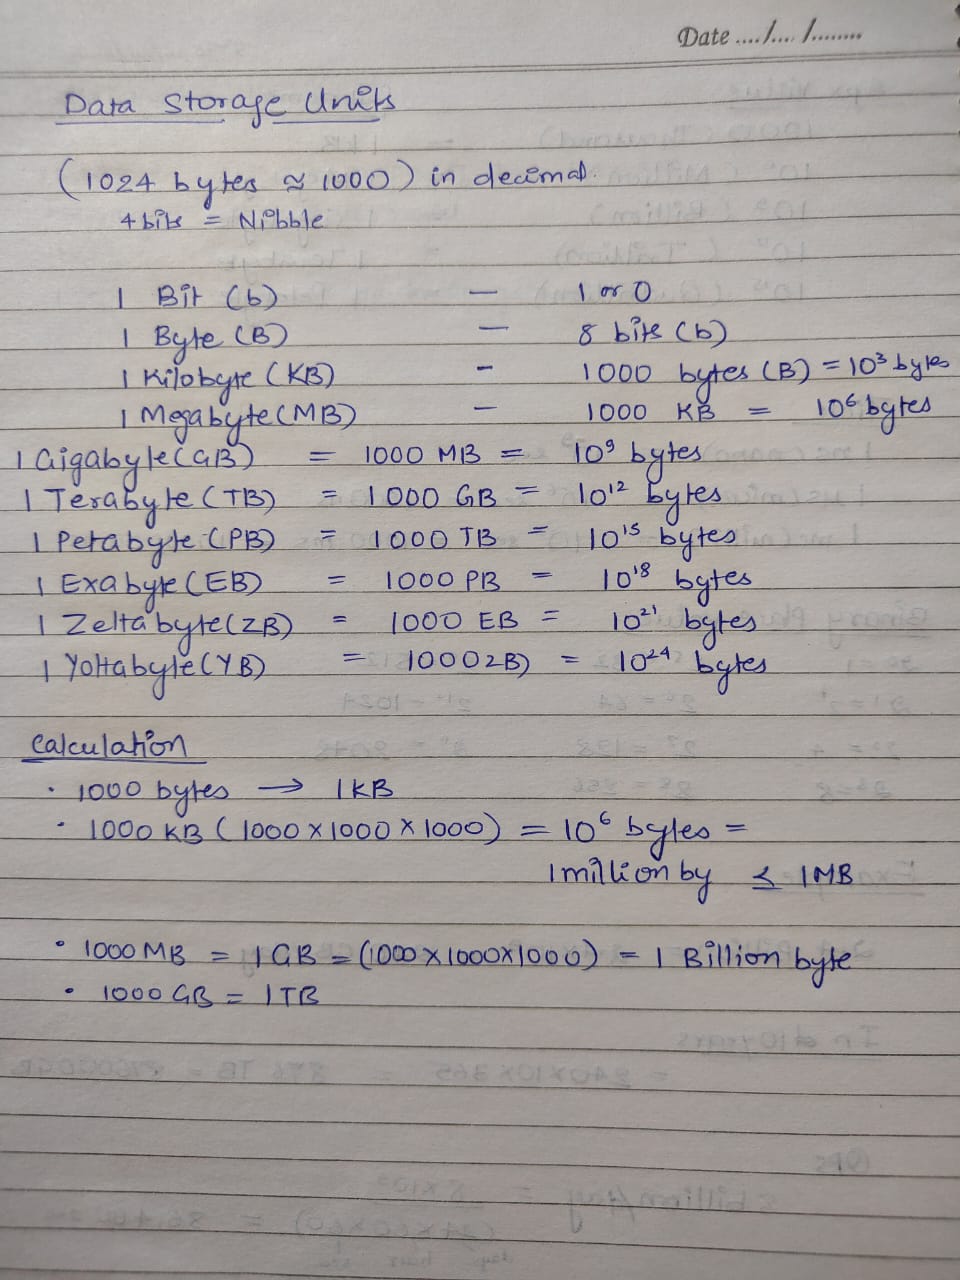 Date ..../.... /........
Data Storage Units
(1024 bytes ≈ 1000) in decimal.
4 bits = Nibble
1 Bit (b) — 1 or 0
1 Byte (B) — 8 bits (b)
1 Kilobyte (KB) - 1000 bytes (B) = 10³ bytes
1 Megabyte (MB) - 1000 KB = 10⁶ bytes
1 Gigabyte (GB) = 1000 MB = 10⁹ bytes
1 Terabyte (TB) = 1000 GB = 10¹² bytes
1 Petabyte (PB) = 1000 TB = 10¹⁵ bytes
1 Exabyte (EB) = 1000 PB = 10¹⁸ bytes
1 Zettabyte (ZB) = 1000 EB = 10²¹ bytes
1 Yottabyte (YB) = 1000 ZB) = 10²⁴ bytes
Calculation
· 1000 bytes → 1 KB
· 1000 KB (1000 x 1000 x 1000) = 10⁶ bytes =
1 million by ≤ 1 MB
· 1000 MB = 1 GB = (1000 x 1000 x 1000) = 1 Billion byte
· 1000 GB = 1 TB